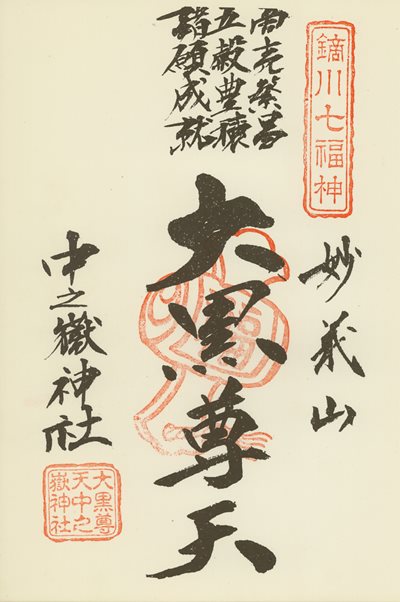 鏑川七福神
商売繁昌
五穀豊穣
諸願成就
妙義山
大黒尊天
中之嶽神社
大黒尊
天中之
嶽神社